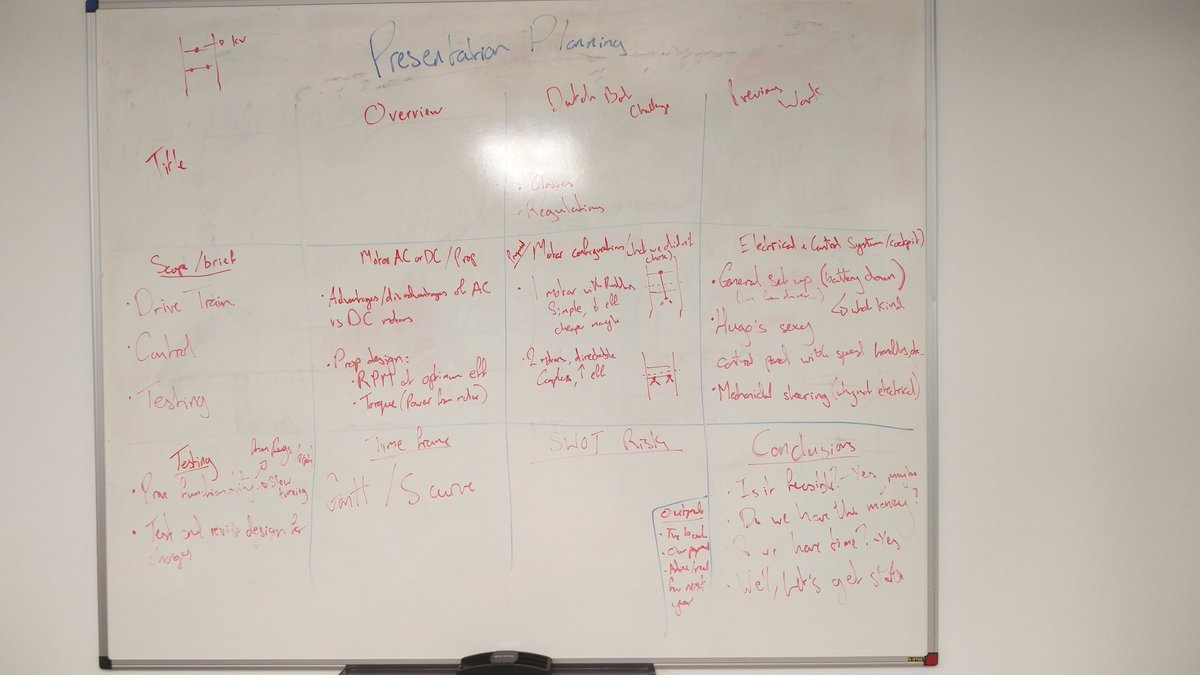 Presentation Planning
kv
Title
Overview
Dutch Boat
Challenge
Previous
Work
• Classes
• Regulations
Scope/brief
• Drive Train
• Control
• Testing
Motor AC or DC / Prop
• Advantages/disadvantages of AC
vs DC motors
• Prop design:
• RPM at optimum eff
• Torque (Power from motor)
Motor configurations (what we didn't
chose)
• 1 motor with Rudders
Simple, ↓ eff
cheaper maybe
• 2 motors, directable
Complex, ↑ eff
Electrical & Control System (cockpit)
• General set up (battery down)
what kind
• Hugo's sexy
control panel with speed handles, etc..
• Mechanical steering (why not electrical)
Testing
• Prove functionality
slow
turning
• Test and revise design for
changes
Time frame
Gantt / S curve
SWOT Risk
Outputs
• The boat
• Our
for next
year
Conclusions
• Is it feasible? - Yes maybe
• Do we have the money?
• Do we have time? - Yes
• Well, let's get